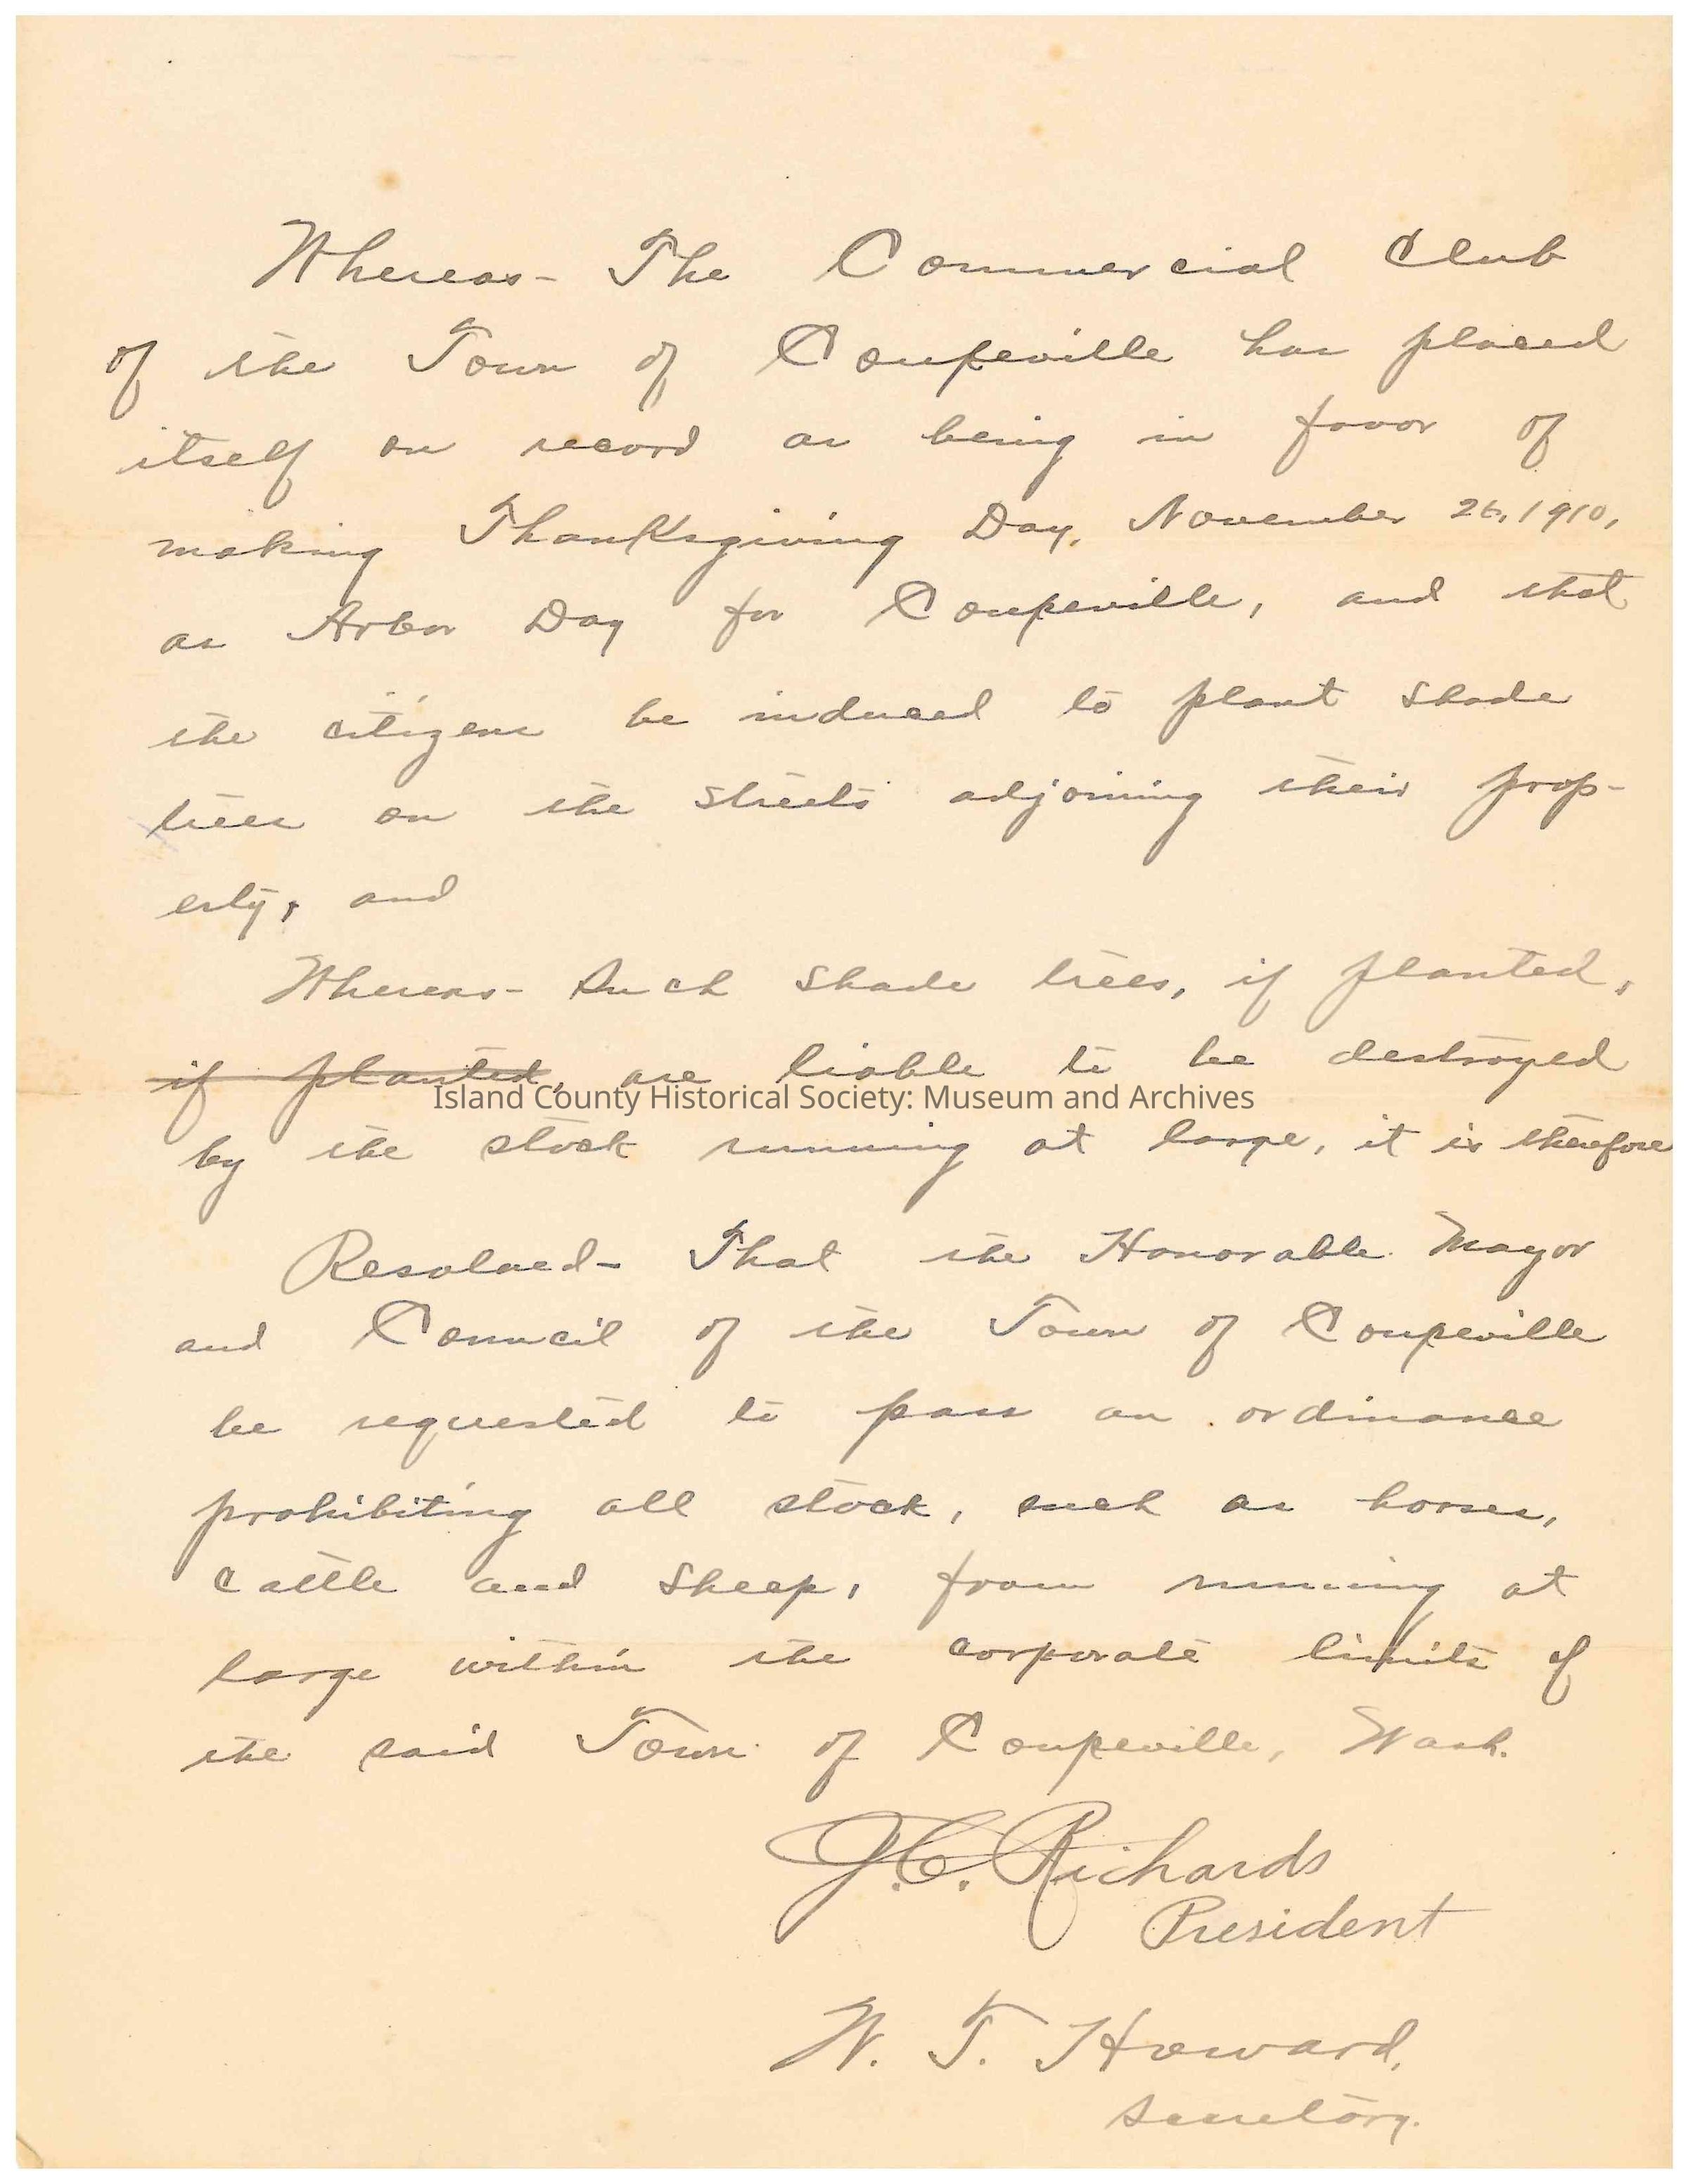 Whereas- The Commercial Club
of the Town of Coupeville has placed
itself on record as being in favor of
making Thanksgiving Day, November 26, 1910,
as Arbor Day for Coupeville, and that
the citizens be induced to plant shade
trees on the streets adjoining their prop-
erty, and
Whereas- Such shade trees, if planted,
if planted, are liable to be destroyed
Island County Historical Society: Museum and Archives
by the stock running at large, it is therefore
Resolved- That the Honorable Mayor
and Council of the Town of Coupeville
be requested to pass an ordinance
prohibiting all stock, such as horses,
cattle and sheep, from running at
large within the corporate limits of
the said Town of Coupeville, Wash.
J.C. Richards
President
W. T. Howard,
Secretary.